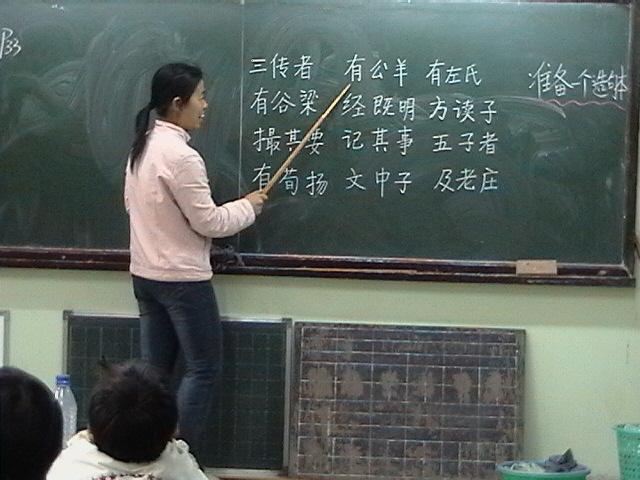 P33
三传者 有公羊 有左氏
有谷梁 经既明 方读子
撮其要 记其事 五子者
有荀扬 文中子 及老庄
准备一个